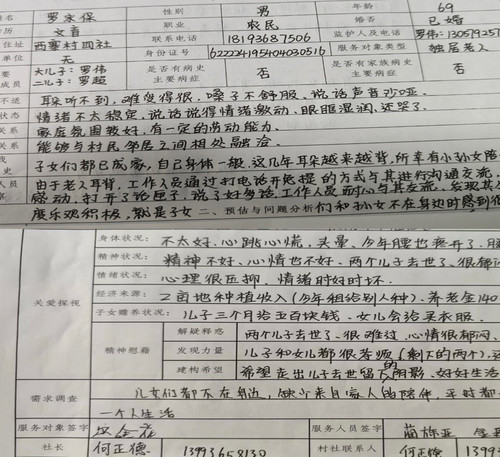 姓名 罗永保 性别 男 年龄 69
文盲 职业 农民 婚否 已婚
住址 西寨村四社 联系电话 18193687506 监护人及电话 罗伟:
单位 无 身份证号 622224195404030516 服务对象类型 独居老人
要 大儿子:罗伟 是否有病史 否 是否有家族病史 否
成员 二儿子:罗超 主要症状 主要症状
耳朵听不到,难受得很,嗓子不舒服,说话声音沙哑。
状态 情绪不太稳定,说话说得情绪激动,眼眶湿润,还哭了。
关系 家庭氛围较好,有一定的劳动能力。
关系 能够与村民邻居之间相处融洽
史 子女们都已成家,自己身体一般,这几年耳朵越来越背,所幸有小孙女陪
人员 由于老人耳背,工作人员通过打电话开免提的方式与其进行沟通交流,
感动,打开了话匣子,说了好多话,工作人员耐心与其交流,发现其
度乐观积极,就是子女 二、预估与问题分析 们和孙女不在身边时感到很
身体状况: 不太好、心跳心慌、头晕、今年腰也疼开了、
精神状况: 精神不好、心情也不好、两个儿子去世了、很郁
关爱探视 情绪状况: 心理很压抑、情绪时好时坏.
经济来源: 2亩地种植收入(今年租给别人种)、养老金140
子女赡养状况: 儿子三个月给五百块钱、女儿会给买衣服.
精神慰藉 解疑释惑 两个儿子去世了、很难过、心情很郁闷、
发现力量 儿子和女儿都很孝顺(剩下的两个),
建构希望 希望走出儿子去世留下的阴影、好好生活
需求调查 儿女们都不在身边,缺少来自家人的陪伴,平时都
一个人生活
服务对象签字 服务人员签字
社长 何正德 13993658130 村社联系人 何正德